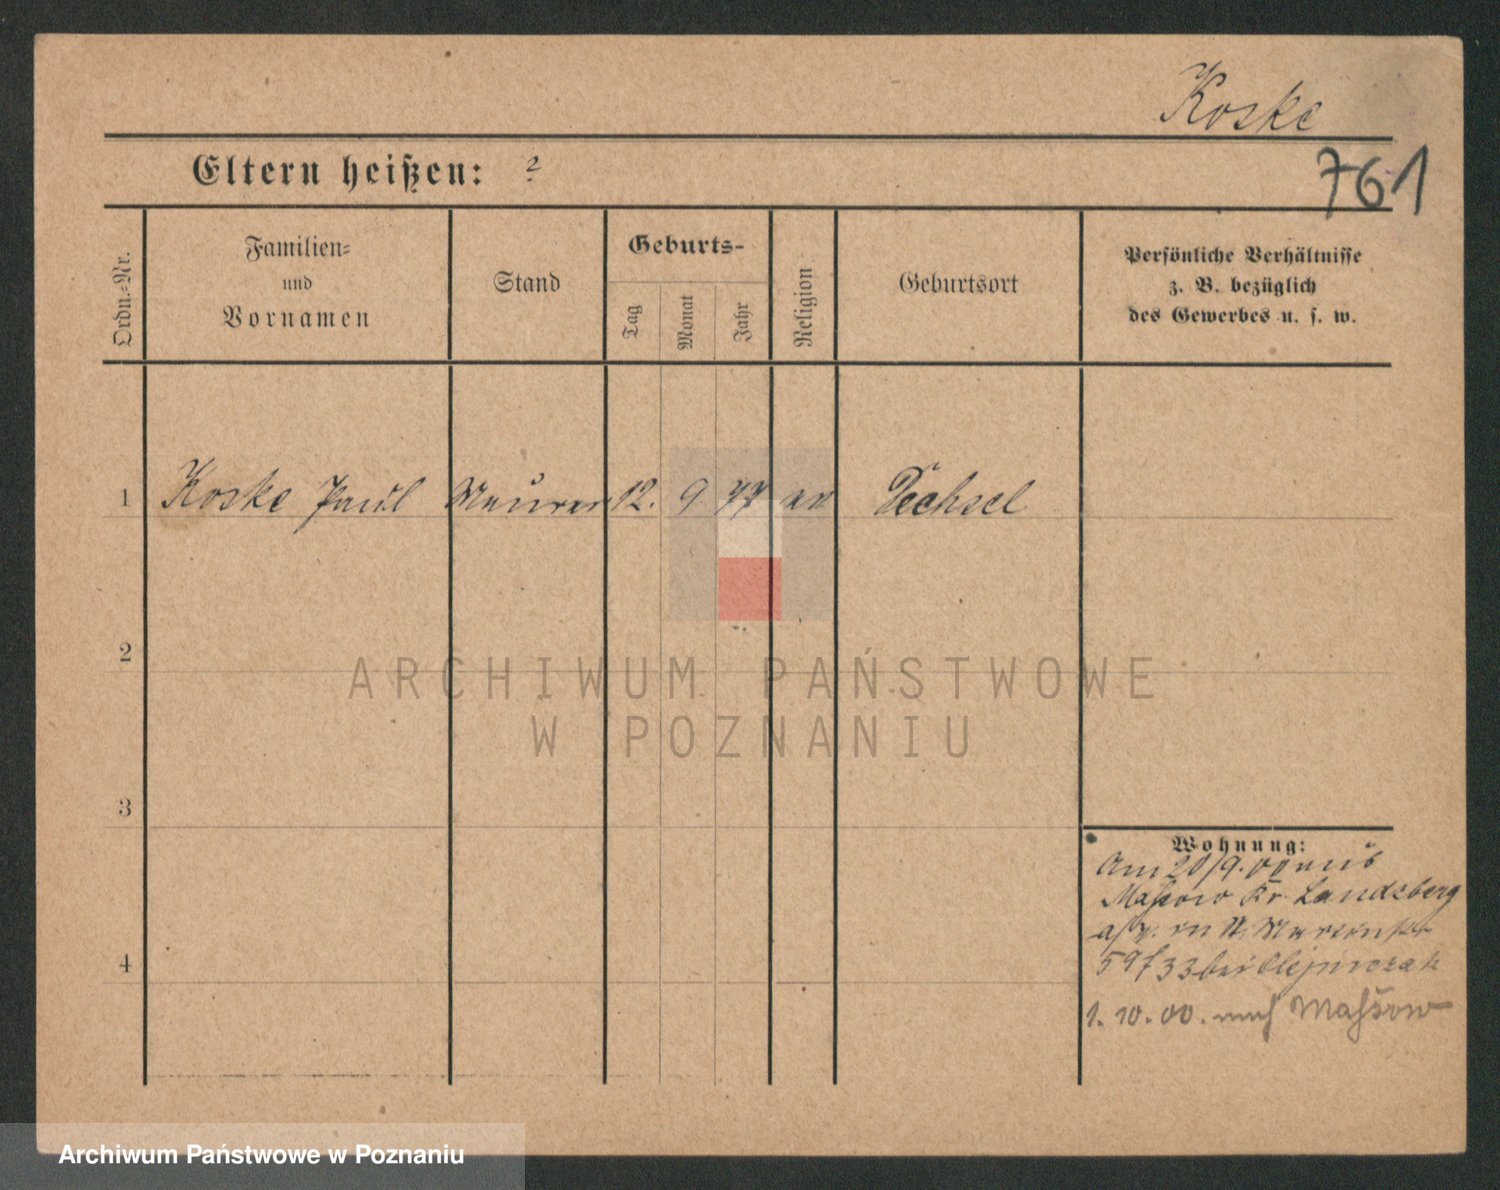 Koske
Eltern heißen: ?
761
Ordn.-Nr.
Familien-
und
Vornamen
Stand
Geburts-
Tag
Monat
Jahr
Religion
Geburtsort
Persönliche Verhältnisse
z. B. bezüglich
des Gewerbes u. s. w.
1 Koske Paul Maurer 12. 9 77 ev Dechsel
2
3
4
Wohnung:
Am 20/9. 00 aus
Massow Kr. Landsberg
a/W. in St. Martinstr
59/33 bei Olejniczak
1. 10. 00. nach Massow
ARCHIWUM PAŃSTWOWE
W POZNANIU
Archiwum Państwowe w Poznaniu